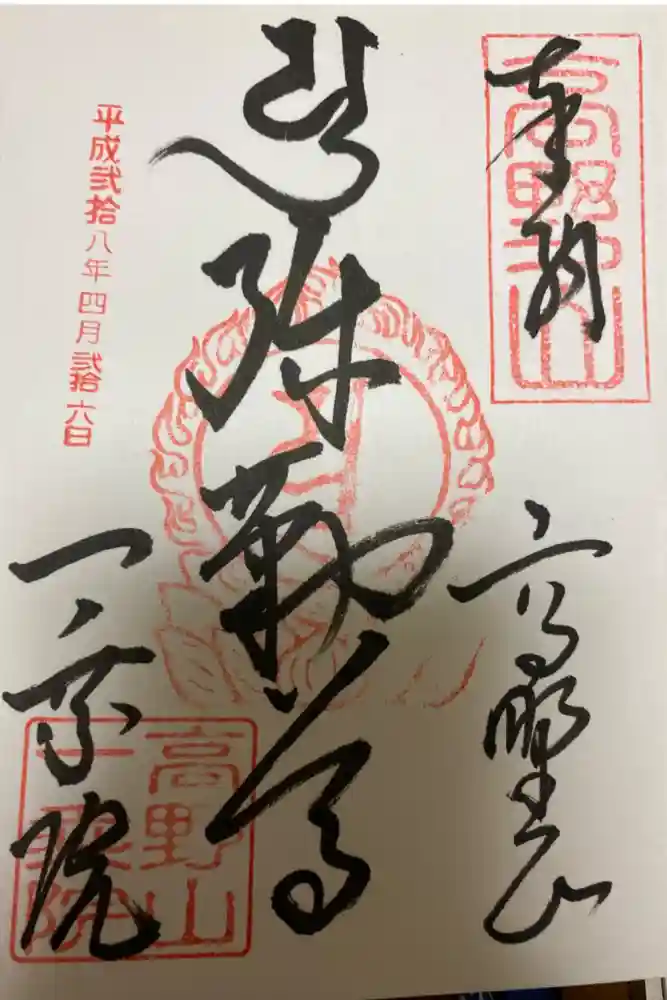 奉納
高野山
高野山
慈弥勒尊
平成弐拾八年四月弐拾六日
一乗院
高野山
一乗院